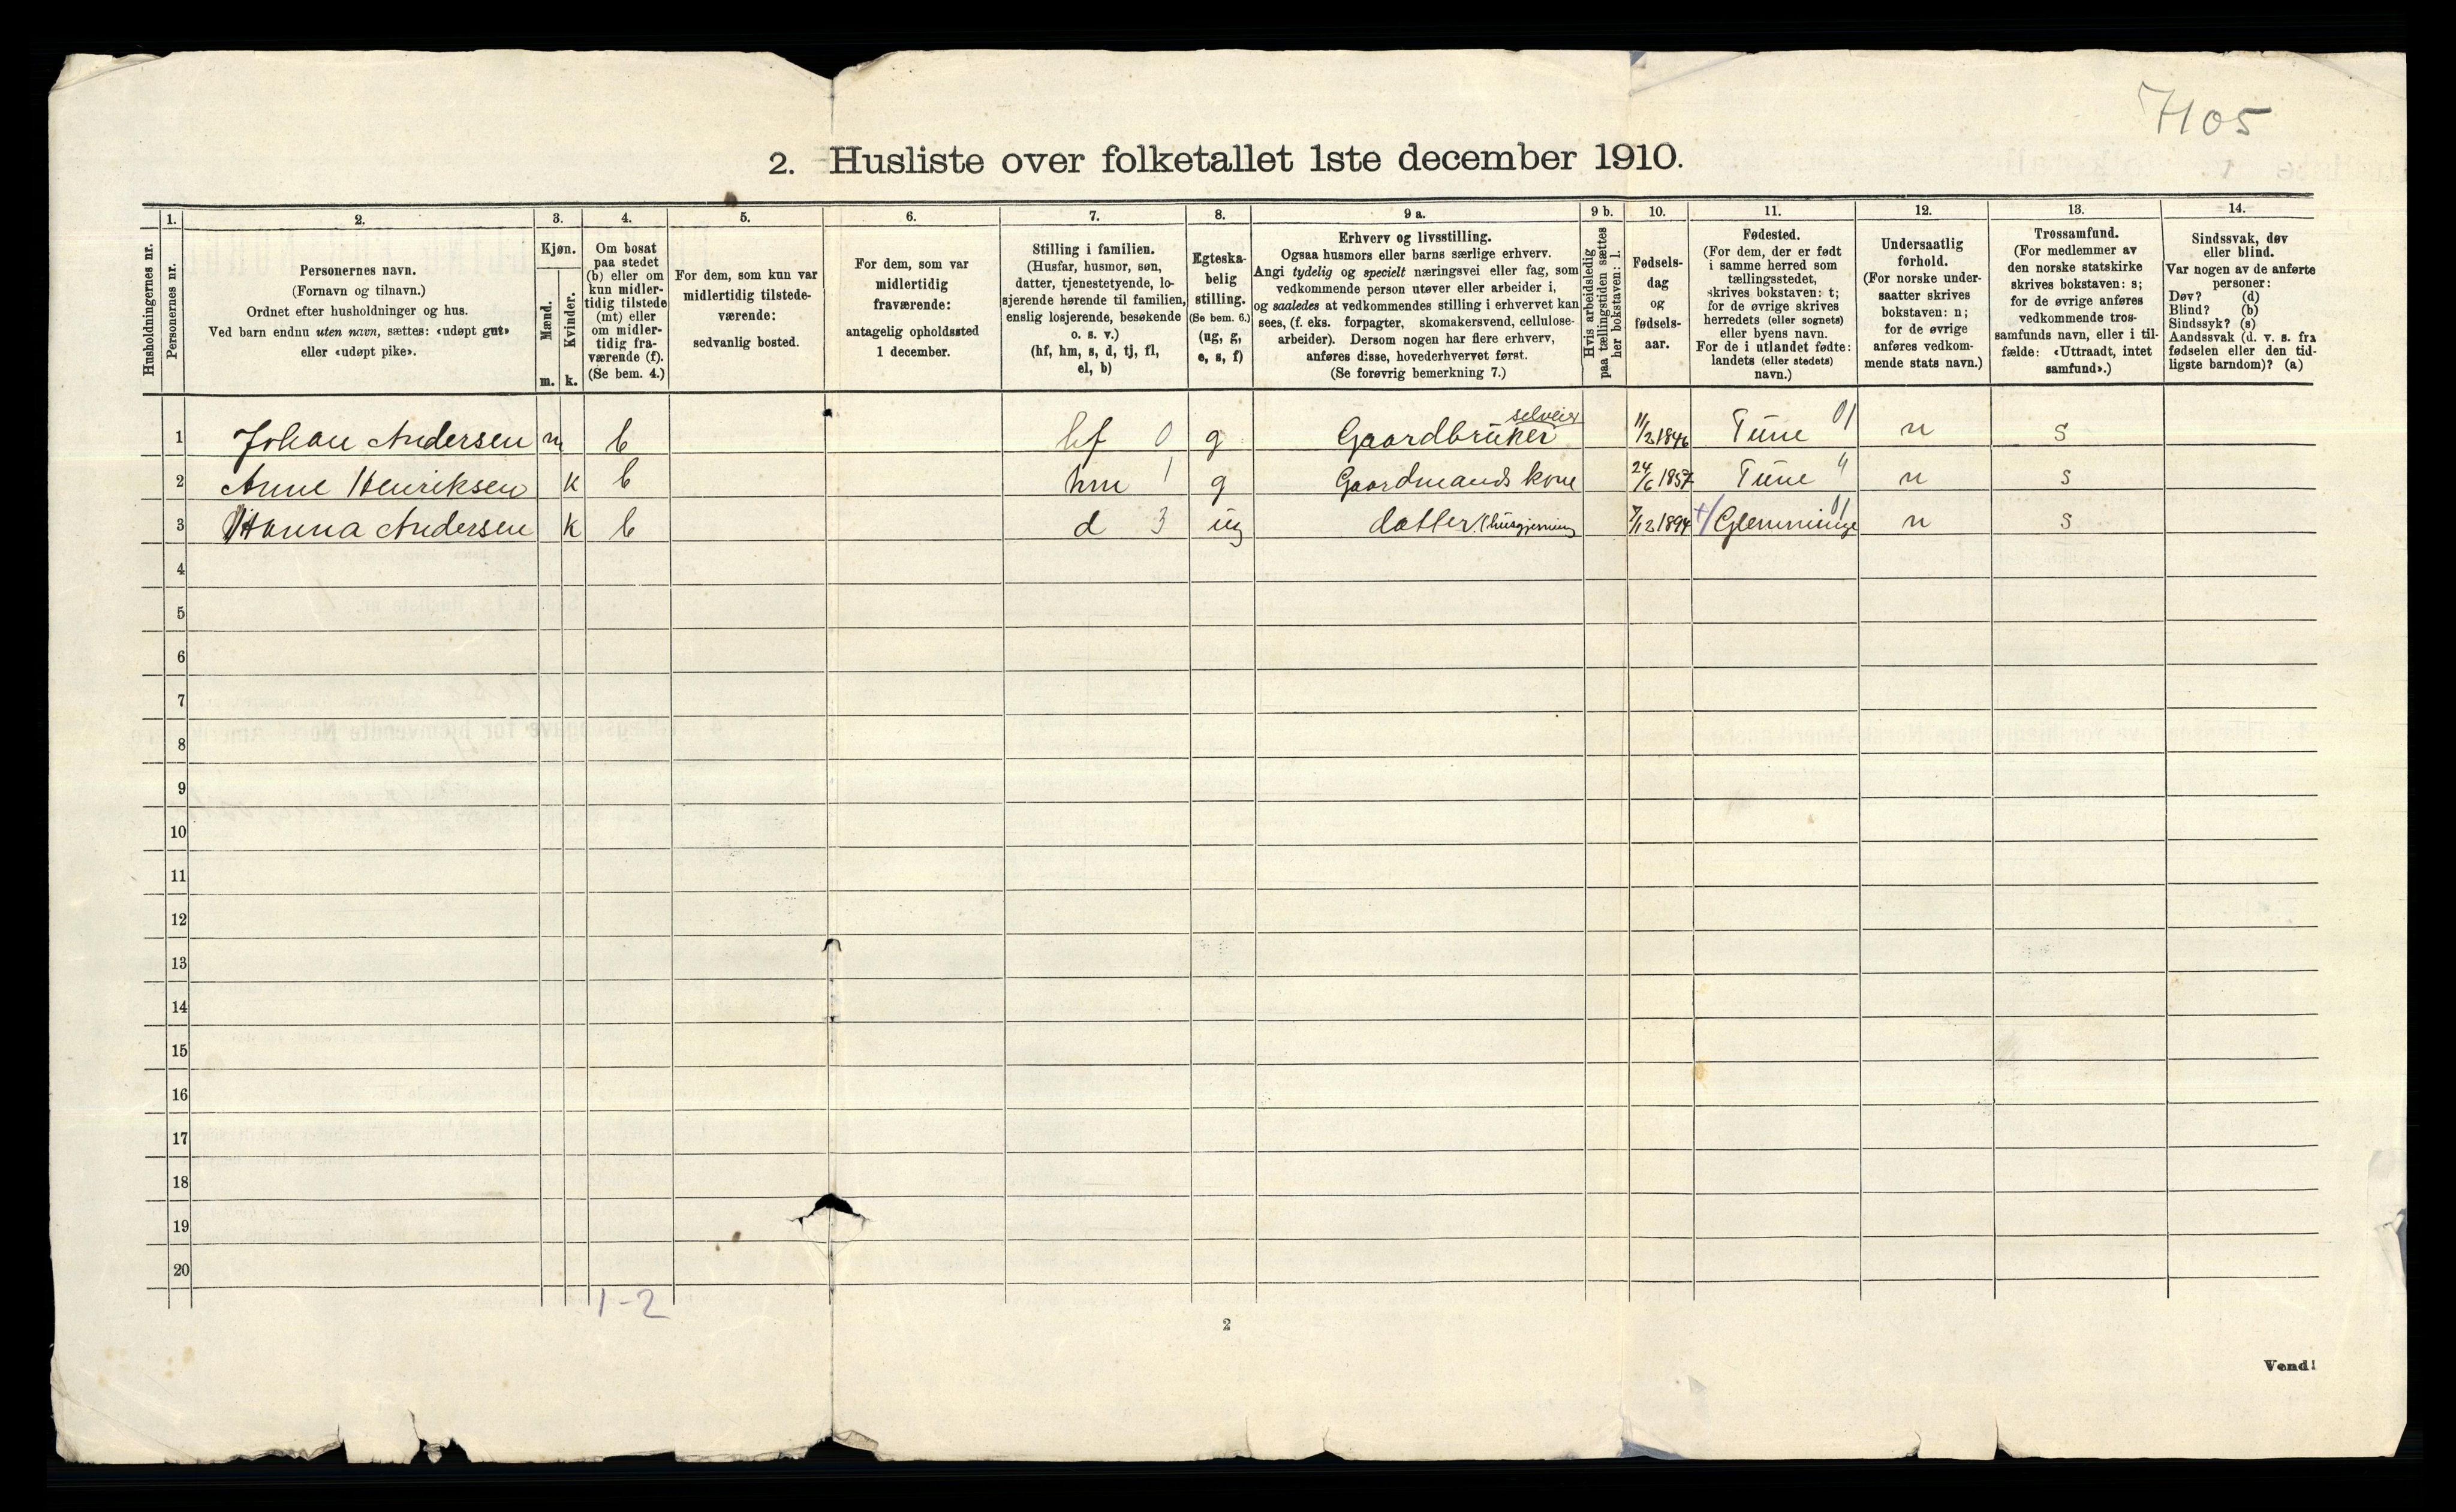 7105
2. Husliste over folketallet 1ste december 1910.
Husholdningernes nr.
1.
Personernes nr.
2.
Personernes navn.
(Fornavn og tilnavn.)
Ordnet efter husholdninger og hus.
Ved barn endnu uten navn, sættes: «udøpt gut»
eller «udøpt pike».
3.
Kjøn.
Mænd.
Kvinder.
m. k.
4.
Om bosat
paa stedet
(b) eller om
kun midler-
tidig tilstede
(mt) eller
om midler-
tidig fra-
værende (f).
(Se bem. 4.)
5.
For dem, som kun var
midlertidig tilstede-
værende:
sedvanlig bosted.
6.
For dem, som var
midlertidig
fraværende:
antagelig opholdssted
1 december.
7.
Stilling i familien.
(Husfar, husmor, søn,
datter, tjenestetyende, lo-
sjerende hørende til familien,
enslig losjerende, besøkende
o. s. v.)
(hf, hm, s, d, tj, fl,
el, b)
8.
Egteska-
belig
stilling.
(Se bem. 6.)
(ug, g,
e, s, f)
9 a.
Erhverv og livsstilling.
Ogsaa husmors eller barns særlige erhverv.
Angi tydelig og specielt næringsvei eller fag, som
vedkommende person utøver eller arbeider i,
og saaledes at vedkommendes stilling i erhvervet kan
sees, (f. eks. forpagter, skomakersvend, cellulose-
arbeider). Dersom nogen har flere erhverv,
anføres disse, hovederhvervet først.
(Se forøvrig bemerkning 7.)
9 b.
Hvis arbeidsledig
paa tællingstiden sættes
her bokstaven: l.
10.
Fødsels-
dag
og
fødsels-
aar.
11.
Fødested.
(For dem, der er født
i samme herred som
tællingsstedet,
skrives bokstaven: t;
for de øvrige skrives
herredets (eller sognets)
eller byens navn.
For de i utlandet fødte:
landets (eller stedets)
navn.)
12.
Undersaatlig
forhold.
(For norske under-
saatter skrives
bokstaven: n;
for de øvrige
anføres vedkom-
mende stats navn.)
13.
Trossamfund.
(For medlemmer av
den norske statskirke
skrives bokstaven: s;
for de øvrige anføres
vedkommende tros-
samfunds navn, eller i til-
fælde: «Uttraadt, intet
samfund».)
14.
Sindssvak, døv
eller blind.
Var nogen av de anførte
personer:
Døv? (d)
Blind? (b)
Sindssyk? (s)
Aandssvak (d. v. s. fra
fødselen eller den tid-
ligste barndom)? (a)
selveier
1 Johan Andersen m b hf 0 g Gaardbruker 11/2 1846 Tune 01 n s
2 Anne Henriksen k b hm 1 g Gaardmands kone 24/6 1857 Tune " n s
3 Hanna Andersen k b d 3 ug datter/husgjerning 7/12 1894 Glemminge 01 n s
4
5
6
7
8
9
10
11
12
13
14
15
16
17
18
19
20
1-2
2
Vend!